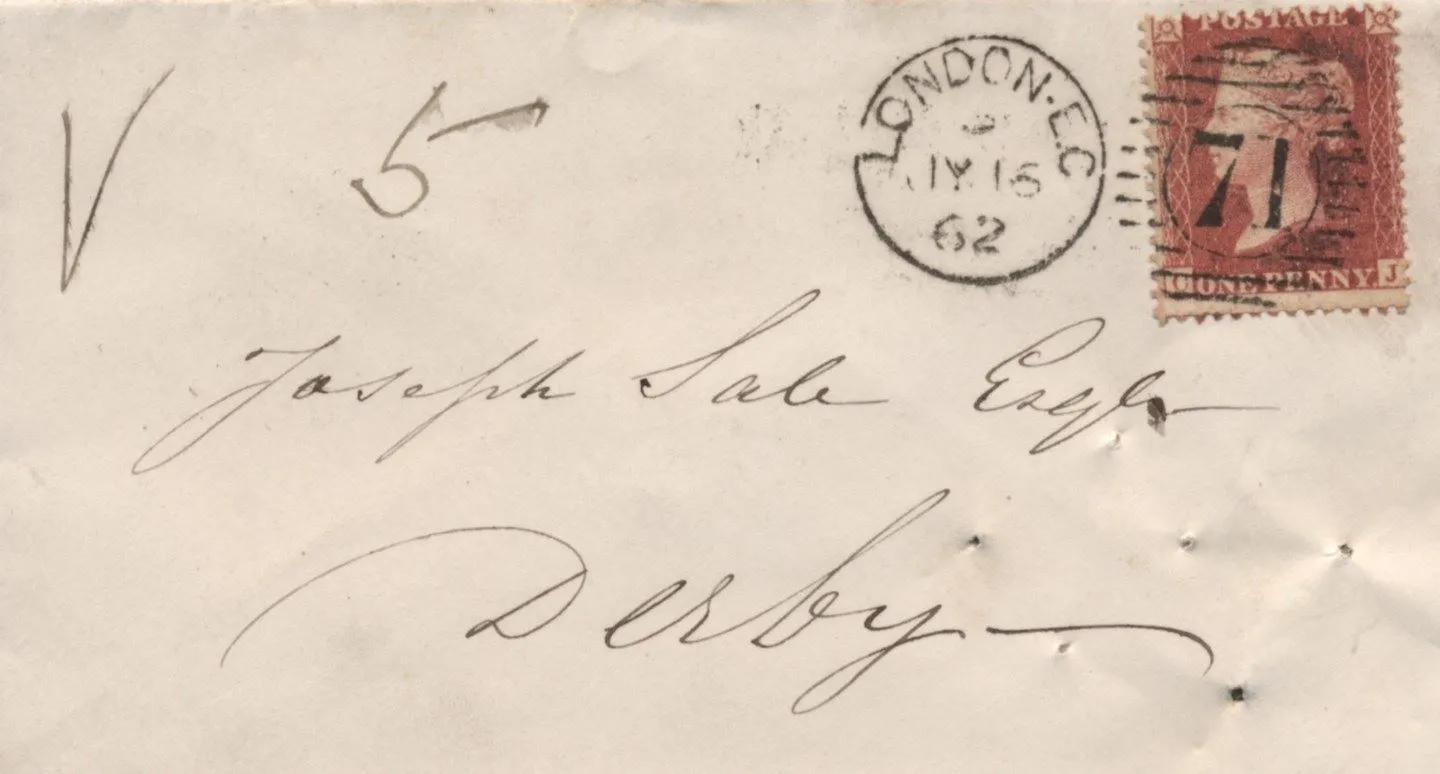 V 5
LONDON·E.C
JY 16
62
71
POSTAGE
ONE PENNY.
J
Joseph Sale Esqr
Derby